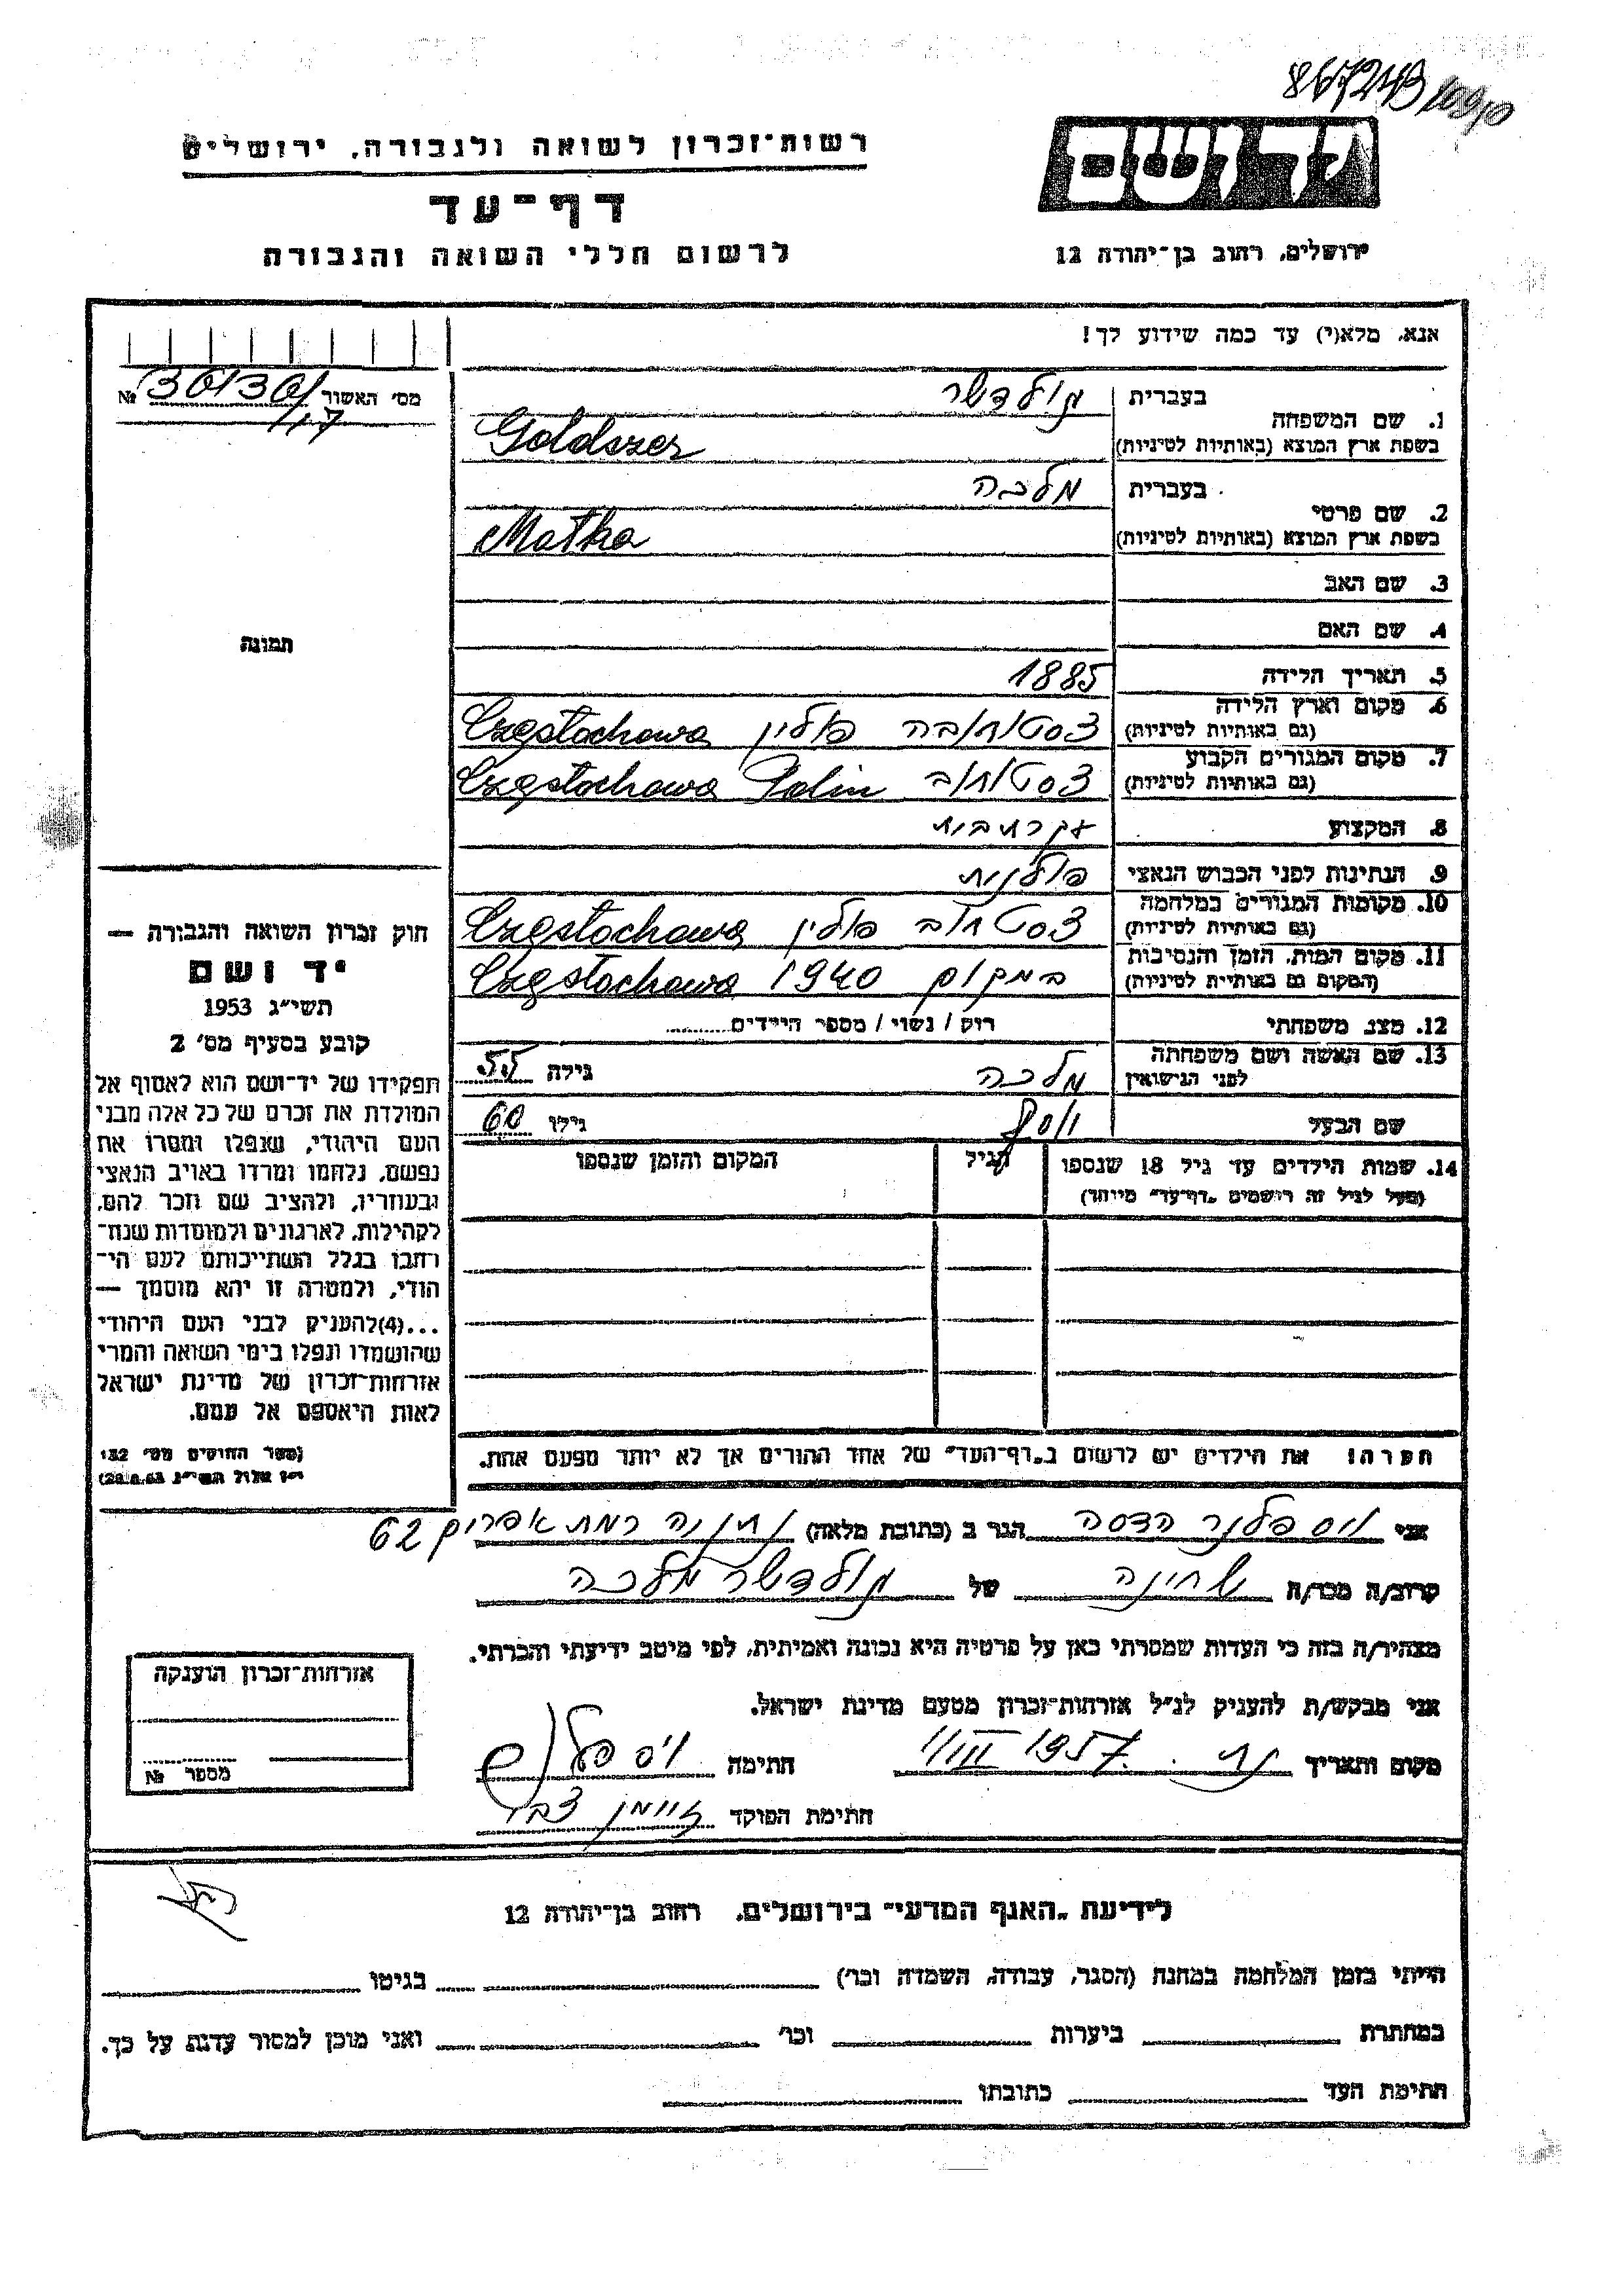 867243
רשות־זכרון לשואה ולגבורה, ירושלים
דף־עד
לרשום חללי השואה והגבורה
יד ושם
ירושלים, רחוב בן־יהודה 12
אנא, מלא(י) עד כמה שידוע לך!
מס׳ האשור №
1. שם המשפחה
בעברית גולדשר
בשפת ארץ המוצא (באותיות לטיניות) Goldszer
2. שם פרטי
בעברית מלכה
בשפת ארץ המוצא (באותיות לטיניות) Matka
3. שם האב
4. שם האם
תמונה
5. תאריך הלידה 1885
6. מקום וארץ הלידה
(גם באותיות לטיניות) צסטוחובה פולין Częstochowa
7. מקום המגורים הקבוע
(גם באותיות לטיניות) צסטוחוב Polin Częstochowa
8. המקצוע עקרת בית
9. הנתינות לפני הכבוש הנאצי פולנית
10. מקומות המגורים במלחמה
(גם באותיות לטיניות) צסטחוב פולין Częstochowa
11. מקום המות, הזמן והנסיבות
(המקום גם באותיות לטיניות) במקום 1940 Częstochowa
12. מצב משפחתי רווק / נשוי / מספר הילדים
13. שם האשה ושם משפחתה
לפני הנישואין מלכה גילה 55
שם הבעל יוסף גילו 60
14. שמות הילדים עד גיל 18 שנספו הגיל המקום והזמן שנספו
(מעל לגיל זה רושמים „דף־עד״ מיוחד)
הערה! את הילדים יש לרשום ב„דף־העד״ של אחד ההורים אך לא יותר מפעם אחת.
חוק זכרון השואה והגבורה —
יד ושם
תשי״ג 1953
קובע בסעיף מס׳ 2
תפקידו של יד־ושם הוא לאסוף אל
המולדת את זכרם של כל אלה מבני
העם היהודי, שנפלו ומסרו את
נפשם, נלחמו ומרדו באויב הנאצי
ובעוזריו, ולהציב שם וזכר להם,
לקהילות, לארגונים ולמוסדות שנח־
רבו בגלל השתייכותם לעם הי־
הודי, ולמטרה זו יהא מוסמך —
...(4)להעניק לבני העם היהודי
שהושמדו ונפלו בימי השואה והמרי
אזרחות־זכרון של מדינת ישראל
לאות היאספם אל עמם.
(ספר החוקים מס׳ 132
י״ז אלול תשי״ג 28.8.53)
אני ויספלנר הדסה הגר ב (כתובת מלאה) נתניה רמת אפרים 62
קרוב/ה מכר/ה שכינה של גולדשר מלכה
מצהיר/ה בזה כי העדות שמסרתי כאן על פרטיה היא נכונה ואמיתית, לפי מיטב ידיעתי והכרתי.
אני מבקש/ת להעניק לנ״ל אזרחות־זכרון מטעם מדינת ישראל.
מקום ותאריך 1957 חתימה
חתימת הפוקד
אזרחות־זכרון הוענקה
מספר №
לידיעת „האגף המדעי״ בירושלים, רחוב בן־יהודה 12
הייתי בזמן המלחמה במחנה (הסגר, עבודה, השמדה וכו׳) בגיטו
במחתרת ביערות וכו׳ ואני מוכן למסור עדות על כך.
חתימת העד כתובתו